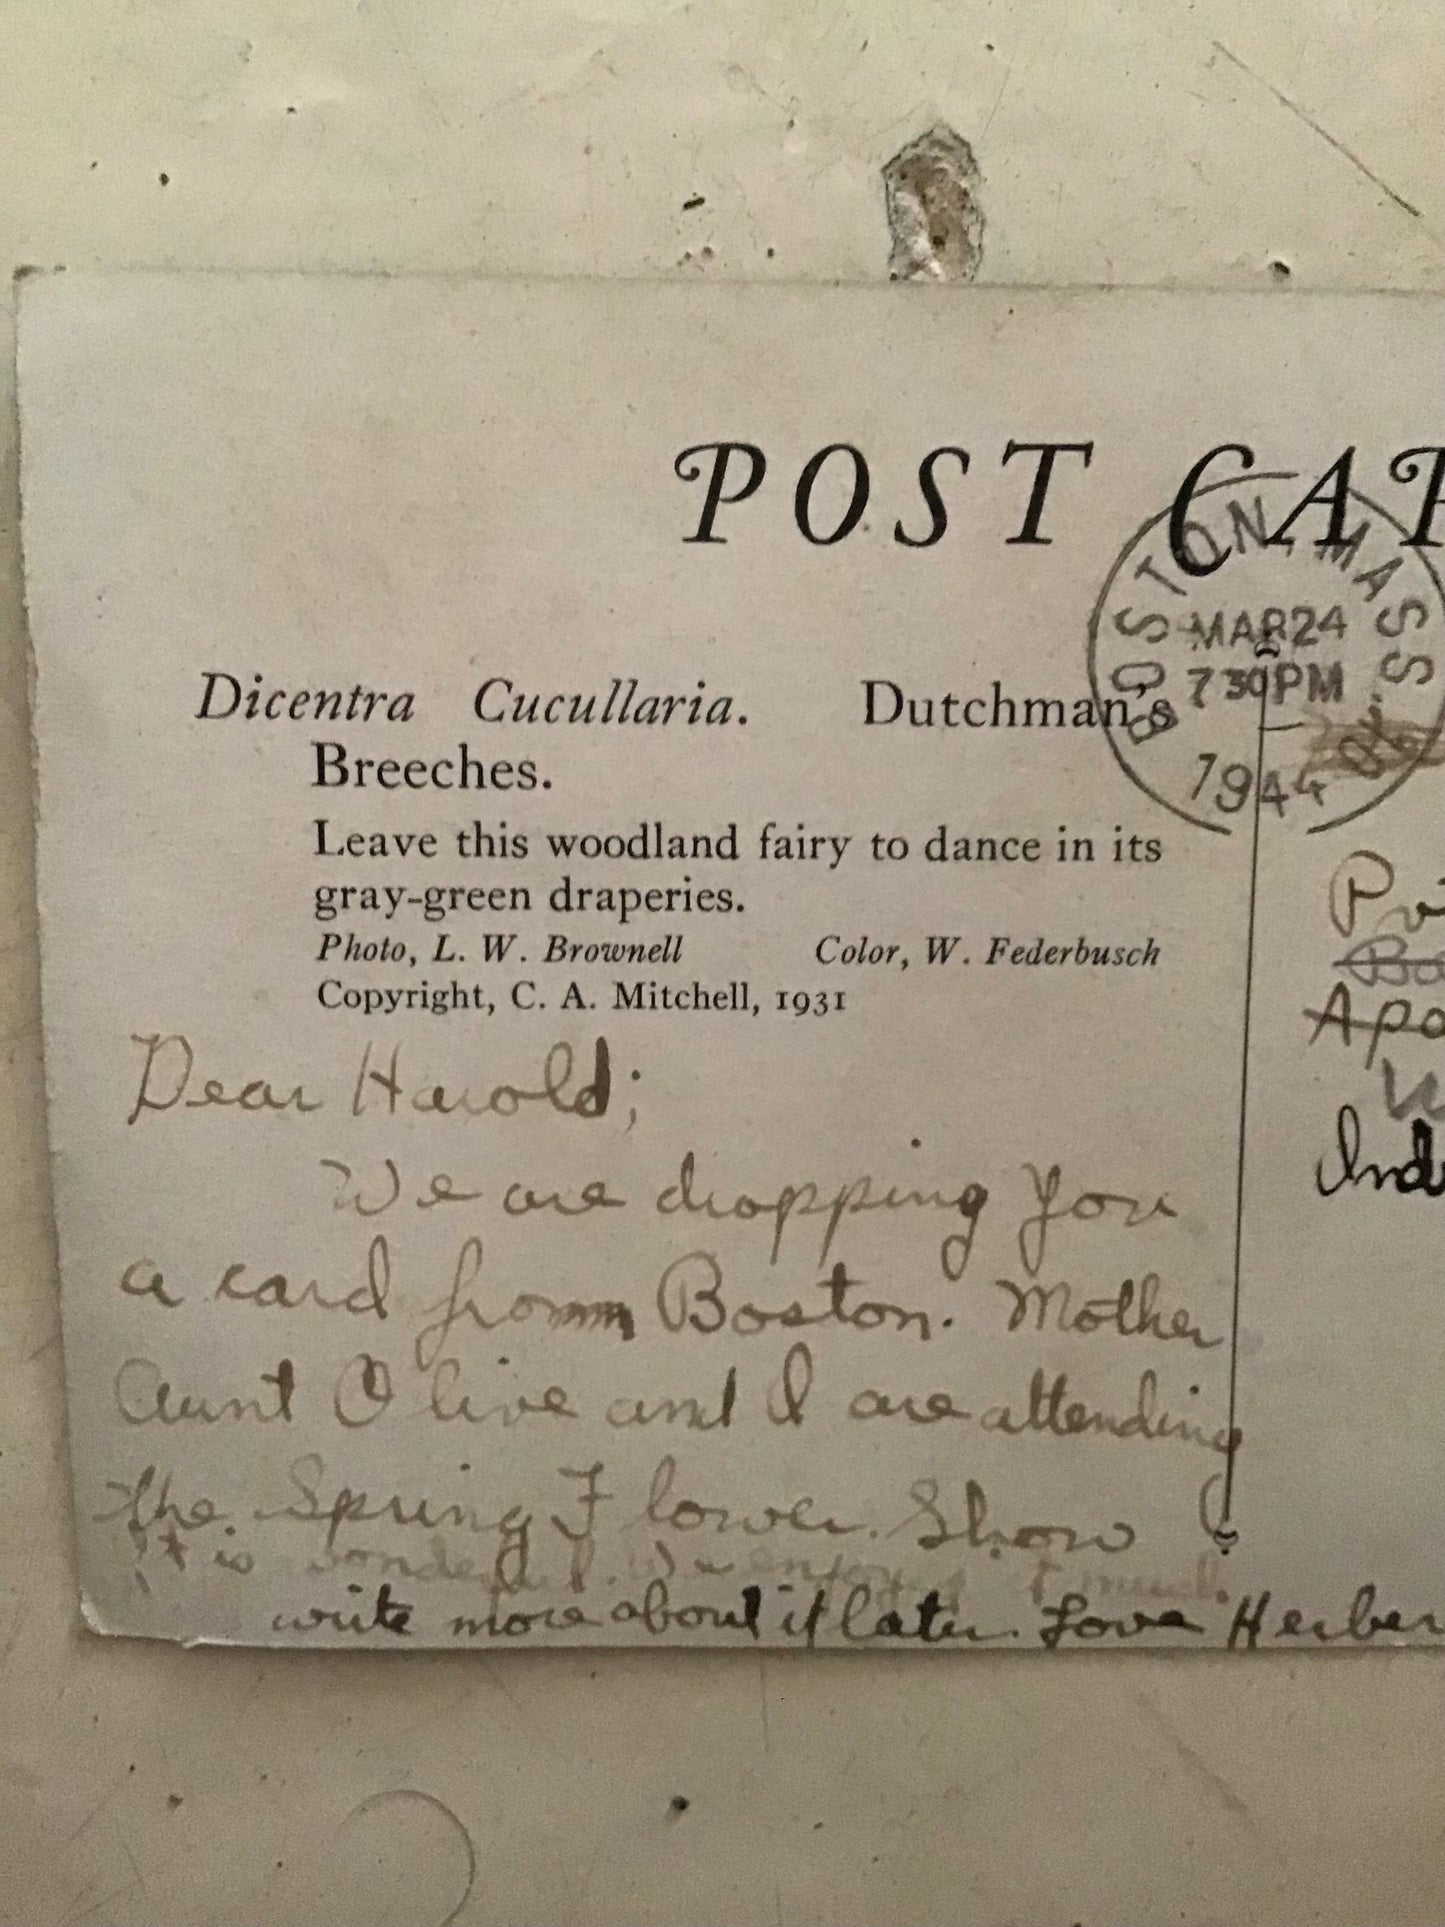 POST CAR
BOSTON, MASS.
MAR 24
7 30 PM
1944
Dicentra Cucullaria. Dutchman's
Breeches.
Leave this woodland fairy to dance in its
gray-green draperies.
Photo, L. W. Brownell Color, W. Federbusch
Copyright, C. A. Mitchell, 1931
Dear Harold;
We are dropping you
a card from Boston. Mother
Aunt Olive and I are attending
the Spring Flower Show
It is wonderful. We much.
write more about it later. Love Herber
Apo
Ind